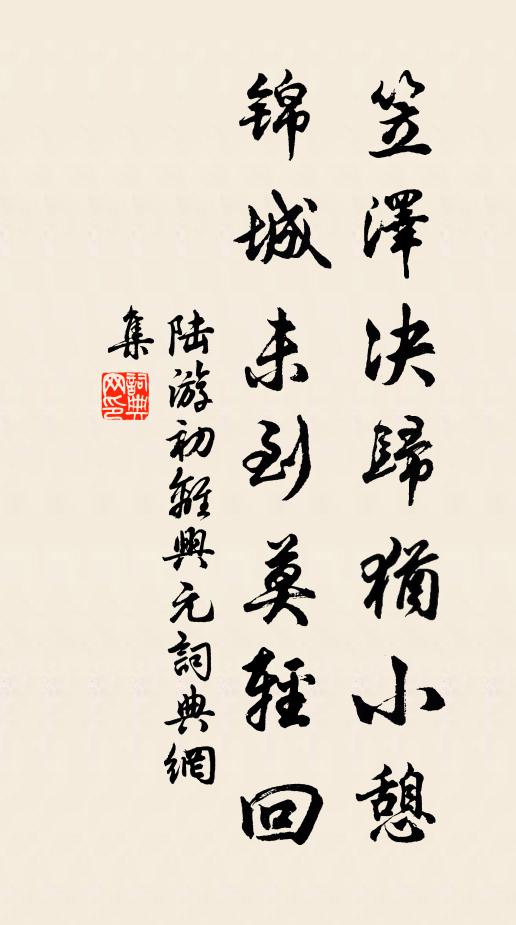 笠澤決歸猶小憩
錦城未到莫輕回
陆游初離興元詞典網
集
詞典
网印